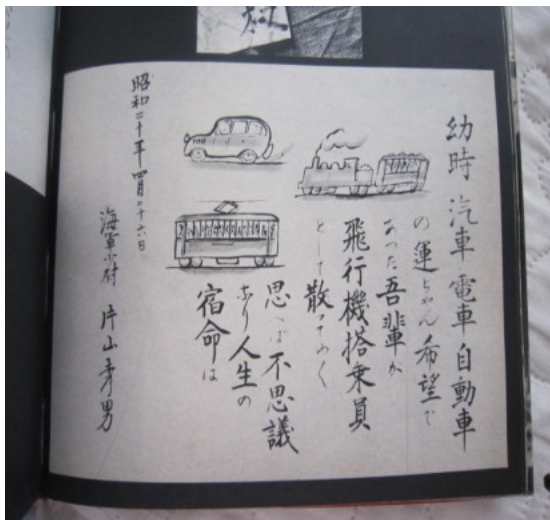 幼時 汽車 電車 自動車
の運ちゃん希望で
あった吾輩が
飛行機搭乗員
として散ってゆく
思へば不思議
なり人生の
宿命は
昭和二十年四月二十六日
海軍少尉 片山秀男